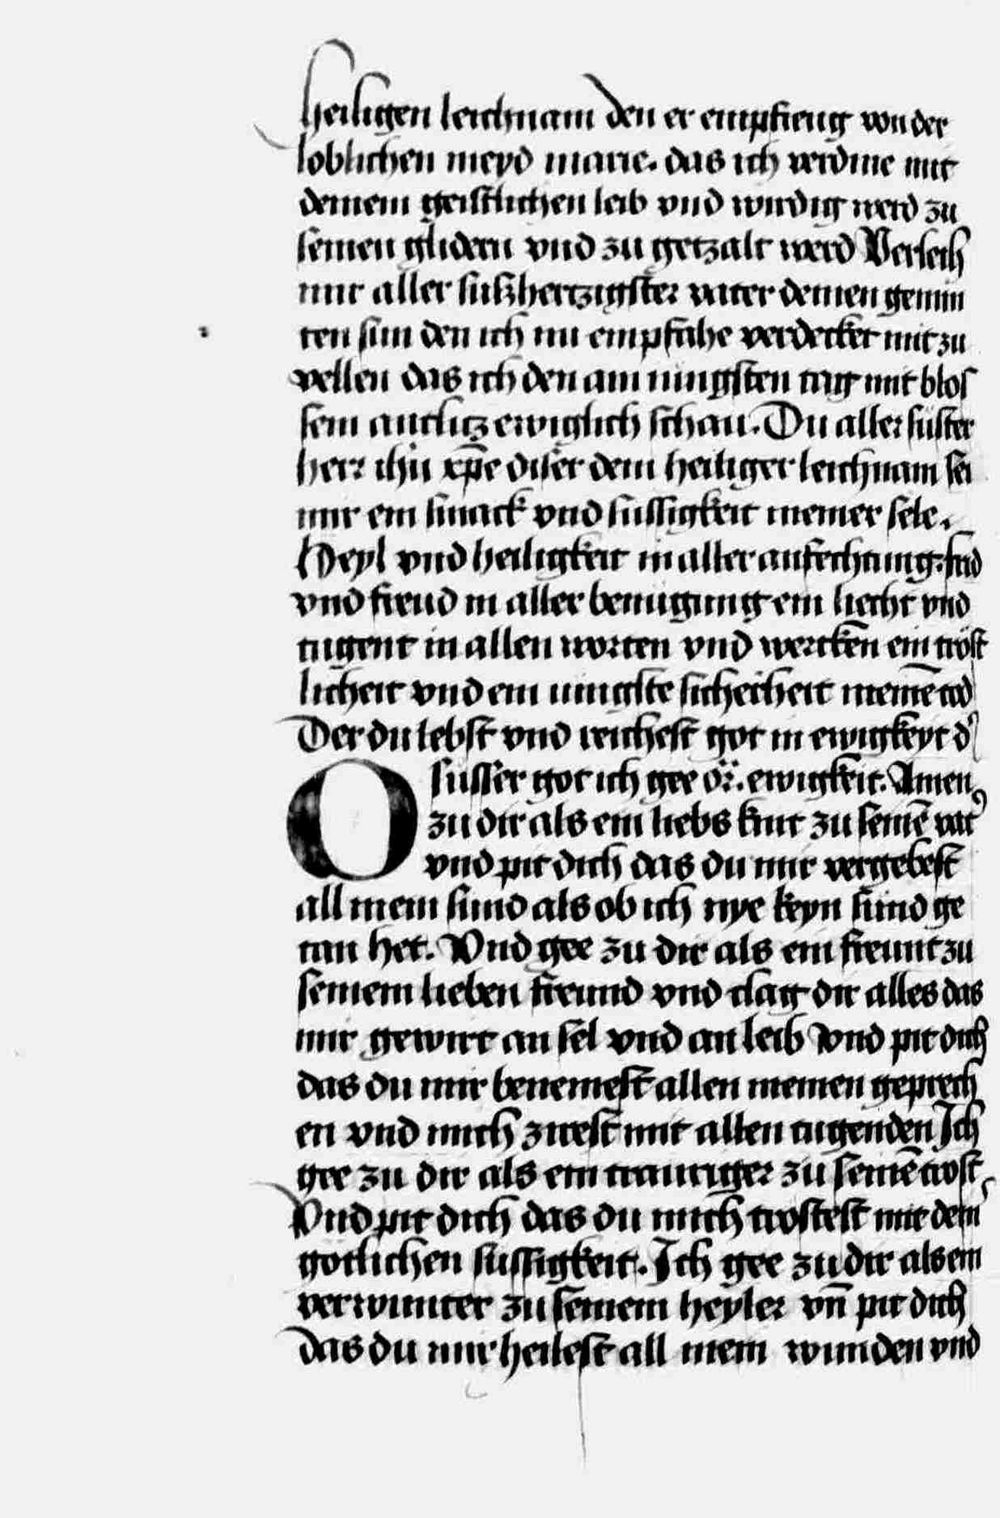 heiligen leichnam den er empfieng von der
loblichen meyd marie. das ich verdine mit
deinem geistlichen leib vnd wirdig werd zu
seinen glidern vnd zu getzalt werd Verleih
mir aller suszhertzigster vater deinen gemin
ten sun den ich nu empfahe verdecket mit zu
vellen das ich den am iungsten tag mit blos
sem antlitz ewiglich schau. Du aller süster
herr ihu xp̄e diser dein heiliger leichnam sei
mir ein smack vnd sussigkeit meiner sele.
Heyl vnd heiligkeit in aller anfechtung. frid
vnd freud in aller benugung ein liecht vnd
tugent in allen worten vnd wercken ein tröst
licheit vnd ein iungste sicherheit meinē tod
Der du lebst vnd reichest got in ewigkeyt d'
O süsser got ich gee ör. ewigkeit. Amen
zu dir als ein liebs kint zu seinē vat'
vnd pit dich das du mir vergebest
all mein sund als ob ich nye keyn sünd ge
tan het. Vnd gee zu dir als ein freunt zu
seinem lieben freund vnd clag dir alles das
mir gewirt an sel vnd an leib Vnd pit dich
das du mir benemest allen meinen geprech
en vnd mich zirest mit allen tugenden Ich
gee zu dir als ein trauriger zu seinē trost
Vnd pit dich das du mich trostest mit dein'
götlichen süssigkeit. Ich gee zu dir als ein
verwunter zu seinem heyler vn̄ pit dich
das du mir heilest all mein wunden vnd